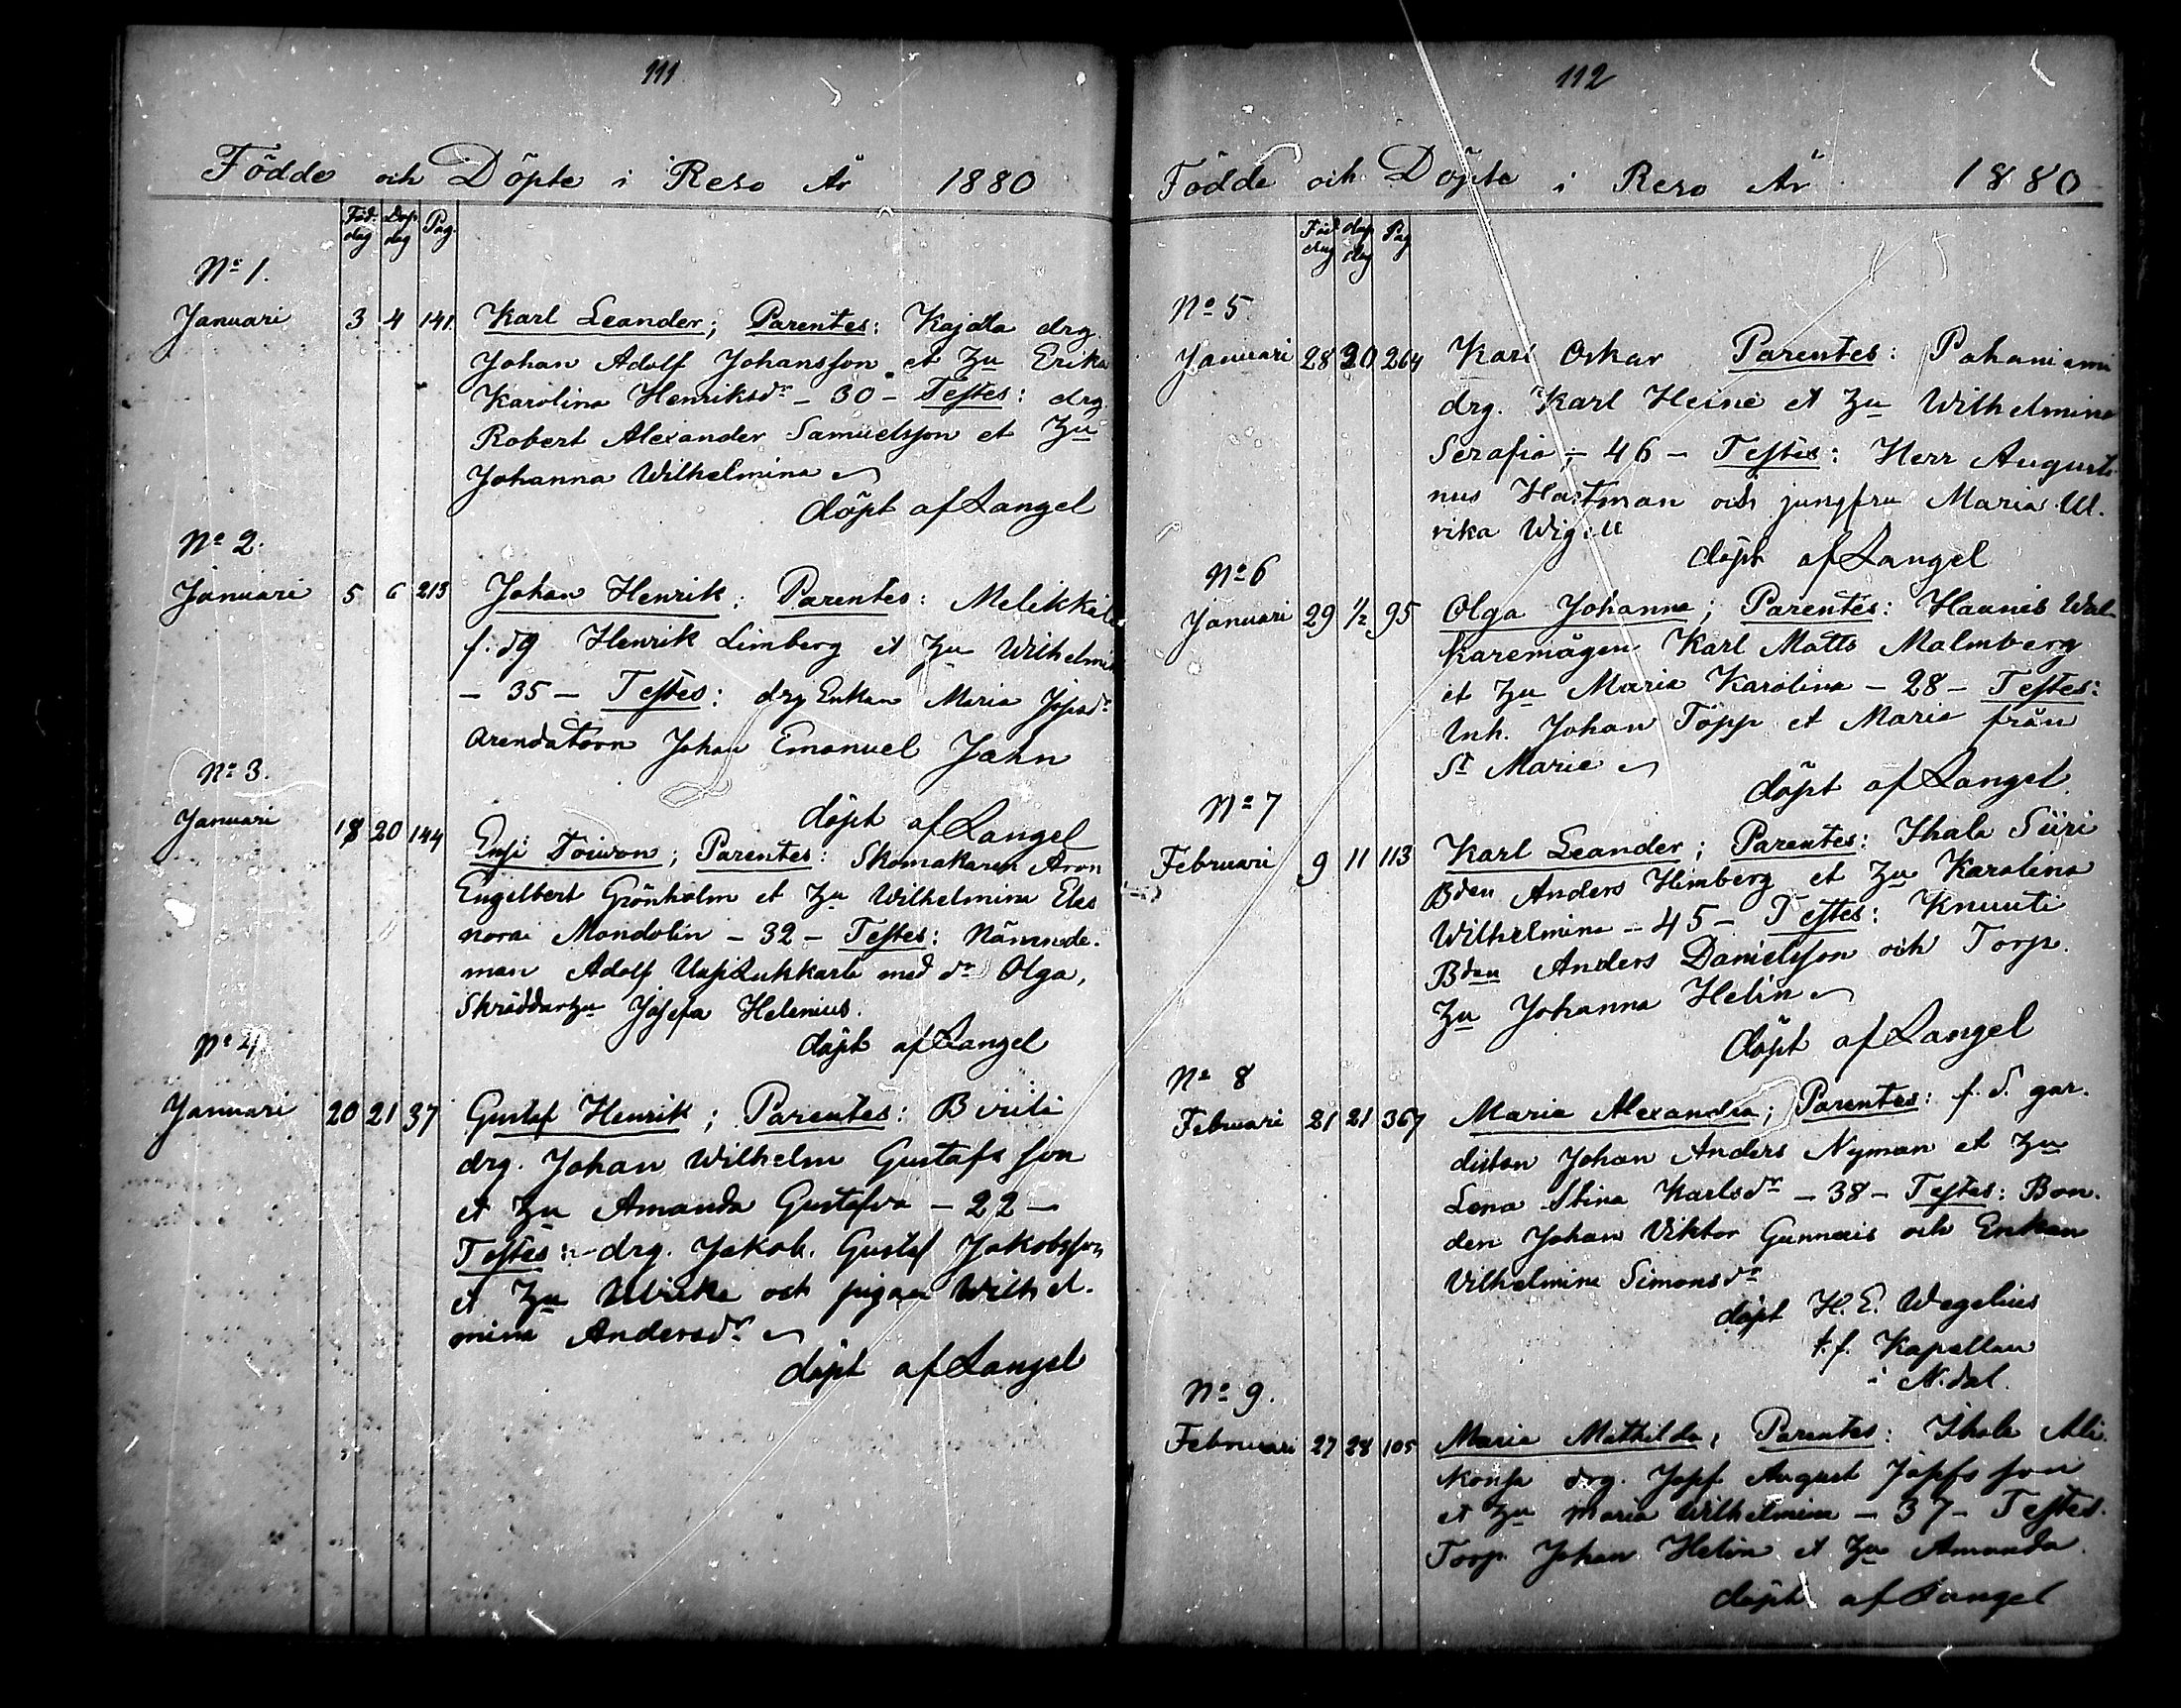 111
Födde och Döpte i Reso År 1880
Föd. dag Döp dag Pag.
No 1.
Januari 3 4 141 Karl Leander; Parentes: Kajala drg
Johan Adolf Johansson et Hu Erika
Karolina Henriksdr – 30 – Testes: drg.
Robert Alexander Samuelsson et Hu
Johanna Wilhelmina
döpt af Langel
No 2.
Januari 5 6 213 Johan Henrik; Parentes:
f. dg Henrik Limberg et Hu Wilhelmina
– 35 – Testes: drg Enkan Maria
arendatorn Johan Emanuel Jahn
döpt af Langel
No 3.
Januari 18 20 144 Toiwon; Parentes: Skomakaren Aron
Engelbert Grönholm et Hu Wilhelmina Eleo
nora Mondolin – 32 – Testes: Nämnde.
man Adolf med dr Olga,
Skräddarhu Josefa Helenius.
döpt af Langel
No 4
Januari 20 21 37 Gustaf Henrik; Parentes:
drg. Johan Wilhelm Gustafsson
et Hu Amanda Gustafva – 22 –
Testes: drg. Jakob Gustaf Jakobsson
et Hu Ulrika och pigan Wilhel.
mina Andersdr
döpt af Langel
112
Födde och Döpte i Reso År 1880
Föd dag döp dag Pag
No 5
Januari 28 30 264 Karl Oskar Parentes: Pahaniemi
drg. Karl Heine et Hu Wilhelmina
Serafia, – 46 – Testes: Herr Augusti
nus Hartman och jungfru Maria Ul.
rika Wigell
döpt af Langel
No 6
Januari 29 1/2 95 Olga Johanna; Parentes: Haunis Wal-
karemågen Karl Matts Malmberg
et Hu Maria Karolina – 28 – Testes:
Inh. Johan Töpp et Maria från
St Marie
döpt af Langel.
No 7
Februari 9 11 113 Karl Leander; Parentes: Ihala Siiri
Bden Anders Himberg et Hu Karolina
Wilhelmina – 45 – Testes: Knuuti
Bden Anders Danielsson och Torp.
Hu Johanna Helin
döpt af Langel
No 8
Februari 21 21 367 Maria Alexandra; Parentes: f. d. gar.
disten Johan Anders Nyman et Hu
Lena Stina Karlsdr – 38 – Testes: Bon.
den Johan Viktor Gunnais och Enkan
Vilhelmina Simonsdr
döpt H. E. Wegelius
t.f. Kapellan
i N.dal.
No 9.
Februari 27 28 105 Maria Mathilda; Parentes: Ihala Ali.
drg. Josef August Josefsson
et Hu Maria Wilhelmina – 37 – Testes.
Torp. Johan Helin et Hu Amanda.
döpt af Langel